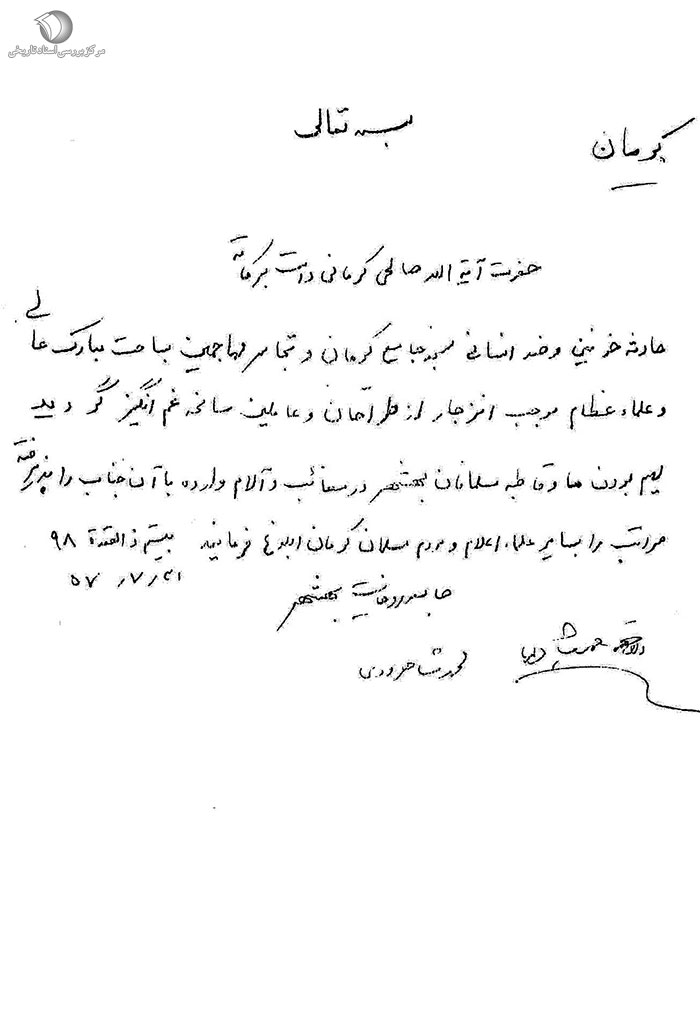 مرکز بررسی اسناد تاریخی
بسمه تعالی
کرمان
حضرت آیة الله صالحی کرمانی دامت برکاته
حادثه خونین و ضد انسانی مسجد جامع کرمان و تجاسر مهاجمین بساحت مبارک عالی
و علماء عظام موجب انزجار از طراحان و عاملین سانحه غم انگیز گردید
سهیم بودن ما و قاطبه مسلمانان بهشهر در مصائب و آلام وارده با آن جناب را پذیرفته
مراتب را بسایر علماء اعلام و مردم مسلمان کرمان ابلاغ فرمائید بیستم ذالقعدة ۹۸
۵۷/۷/۳۱
جامعه روحانیت بهشهر
محمد شاهرودی